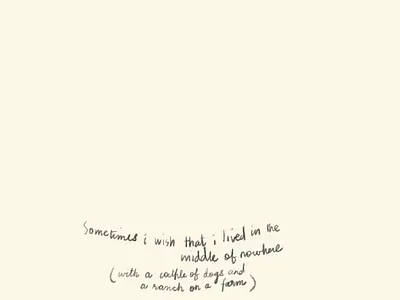 Sometimes i wish that i lived in the
middle of nowhere
(with a couple of dogs and
a ranch on a farm)